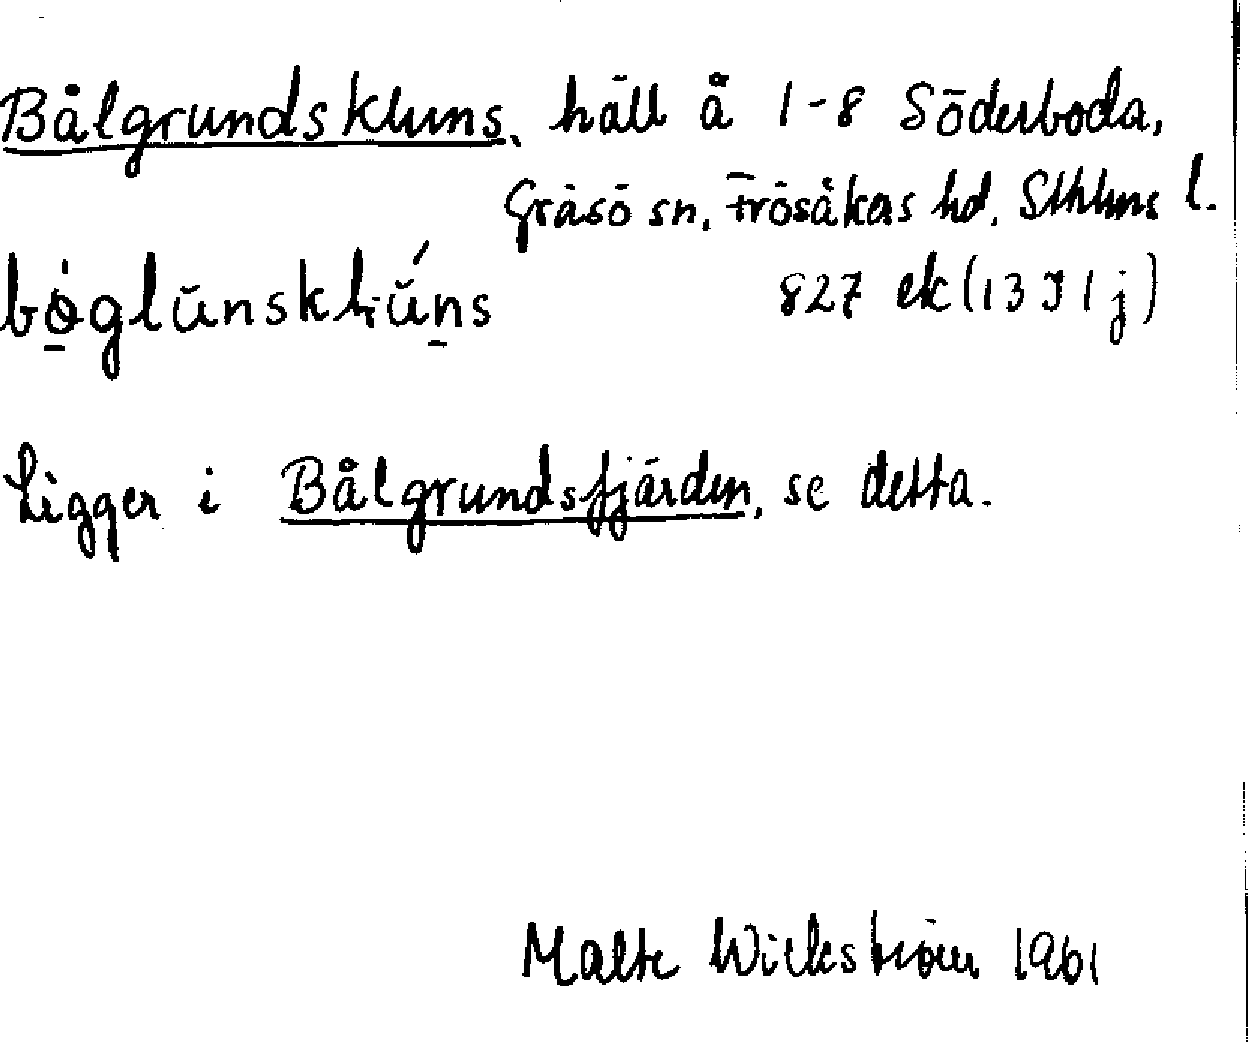 Bålgrundskluns, häll å 1-8 Söderboda,
Gräsö sn, Frösåkers hd, Sthlms l.
827 ek (13 I 1 j)
Ligger i Bålgrundsfjärden, se detta.
Malte Wickström 1961